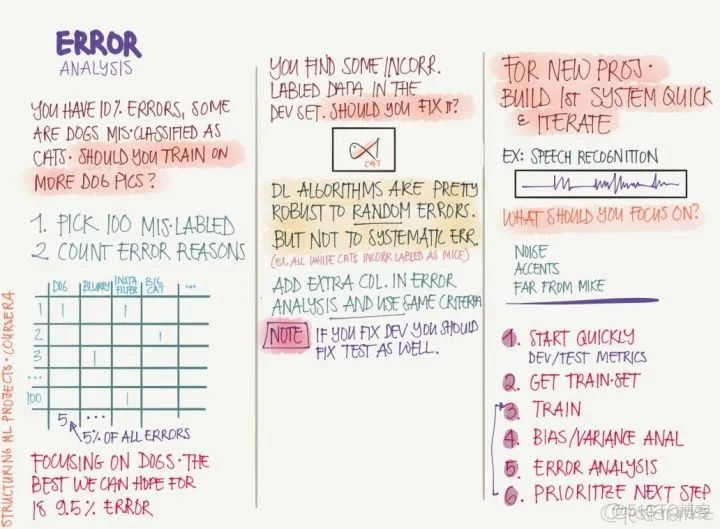 ERROR
ANALYSIS
YOU HAVE 10% ERRORS, SOME
ARE DOGS MIS-CLASSIFIED AS
CATS. SHOULD YOU TRAIN ON
MORE DOG PICS?
1. PICK 100 MIS-LABLED
2. COUNT ERROR REASONS
DOG BLURRY INSTA FILTER BIG CAT ...
1 1 1
2 1
3 1
...
100 1
5 ...
5% OF ALL ERRORS
FOCUSING ON DOGS. THE
BEST WE CAN HOPE FOR
IS 9.5% ERROR
STRUCTURING ML PROJECTS. COURSERA
YOU FIND SOME INCORR.
LABLED DATA IN THE
DEV SET. SHOULD YOU FIX IT?
CAT
DL ALGORITHMS ARE PRETTY
ROBUST TO RANDOM ERRORS.
BUT NOT TO SYSTEMATIC ERR.
(EX. ALL WHITE CATS INCORR LABLED AS MICE)
ADD EXTRA COL. IN ERROR
ANALYSIS AND USE SAME CRITERIA
NOTE IF YOU FIX DEV YOU SHOULD
FIX TEST AS WELL.
FOR NEW PROJ.
BUILD 1ST SYSTEM QUICK
& ITERATE
EX: SPEECH RECOGNITION
WHAT SHOULD YOU FOCUS ON?
NOISE
ACCENTS
FAR FROM MIKE
1. START QUICKLY
DEV/TEST METRICS
2. GET TRAIN-SET
3. TRAIN
4. BIAS/VARIANCE ANAL
5. ERROR ANALYSIS
6. PRIORITIZE NEXT STEP